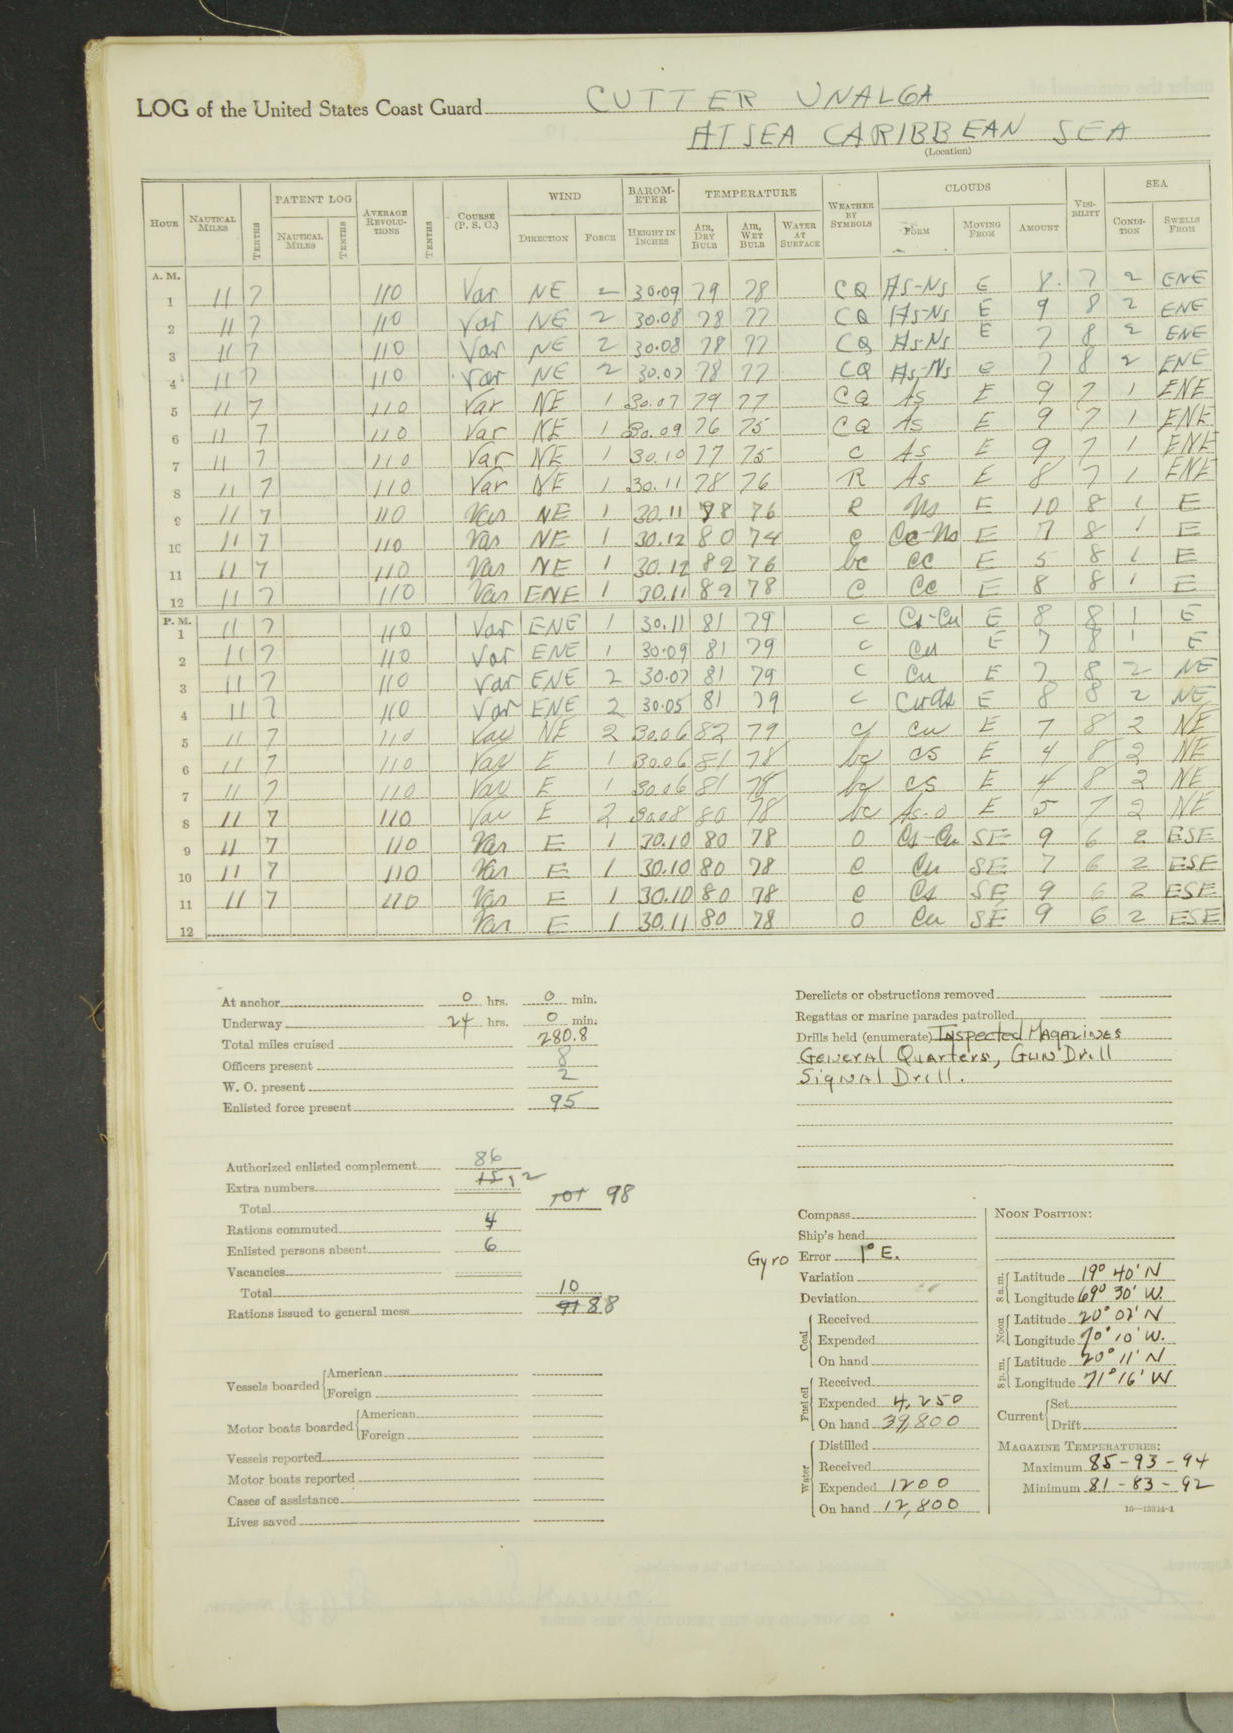 LOG of the United States Coast Guard CUTTER UNALGA
AT SEA CARIBBEAN SEA
(Location)
HOUR NAUTICAL MILES TENTHS PATENT LOG NAUTICAL MILES TENTHS AVERAGE REVOLUTIONS TENTHS COURSE (P. S. C.) WIND DIRECTION FORCE BAROMETER HEIGHT IN INCHES TEMPERATURE AIR, DRY BULB AIR, WET BULB WATER AT SURFACE WEATHER BY SYMBOLS CLOUDS FORM MOVING FROM AMOUNT VISIBILITY SEA CONDITION SWELLS FROM
A. M.
1 11 7 110 Var NE 2 30.09 79 78 CQ As-Ns E 8 7 2 ENE
2 11 7 110 Var NE 2 30.08 78 77 CQ As-Ns E 9 8 2 ENE
3 11 7 110 Var NE 2 30.08 78 77 CQ As-Ns E 7 8 2 ENE
4 11 7 110 Var NE 2 30.07 78 77 CQ As-Ns E 7 8 2 ENE
5 11 7 110 Var NE 1 30.07 79 77 CQ As E 9 7 1 ENE
6 11 7 110 Var NE 1 30.09 76 75 CQ As E 9 7 1 ENE
7 11 7 110 Var NE 1 30.10 77 75 C As E 9 7 1 ENE
8 11 7 110 Var NE 1 30.11 78 76 R As E 8 7 1 ENE
9 11 7 110 Var NE 1 30.11 78 76 Ns E 10 8 1 E
10 11 7 110 Var NE 1 30.12 80 74 c Cc-Ns E 7 8 1 E
11 11 7 110 Var NE 1 30.12 82 76 bc Cc E 5 8 1 E
12 11 7 110 Var ENE 1 30.11 82 78 C Cc E 8 8 1 E
P. M.
1 11 7 110 Var ENE 1 30.11 81 79 c Cs-Cu E 8 8 1 E
2 11 7 110 Var ENE 1 30.09 81 79 c Cu E 7 8 1 E
3 11 7 110 Var ENE 2 30.07 81 79 c Cu E 7 8 2 NE
4 11 7 110 Var ENE 2 30.05 81 79 c E 8 8 2 NE
5 11 7 110 Var NE 2 30.06 82 79 c Cu E 7 8 2 NE
6 11 7 110 Var E 1 30.06 81 78 bc CS E 4 8 2 NE
7 11 7 110 Var E 1 30.06 81 78 bc CS E 4 8 2 NE
8 11 7 110 Var E 2 30.08 80 78 bc E 5 7 2 NE
9 11 7 110 Var E 1 30.10 80 78 O Cs-Cu SE 9 6 2 ESE
10 11 7 110 Var E 1 30.10 80 78 c Cu SE 7 6 2 ESE
11 11 7 110 Var E 1 30.10 80 78 c Cs SE 9 6 2 ESE
12 Var E 1 30.11 80 78 O Cu SE 9 6 2 ESE
At anchor 0 hrs. 0 min.
Underway 24 hrs. 0 min.
Total miles cruised 280.8
Officers present 8
W. O. present 2
Enlisted force present 95
Authorized enlisted complement 86
Extra numbers 15 12
Total 101 98
Rations commuted 4
Enlisted persons absent 6
Vacancies
Total 10
Rations issued to general mess 91 88
Vessels boarded American
Foreign
Motor boats boarded American
Foreign
Vessels reported
Motor boats reported
Cases of assistance
Lives saved
Derelicts or obstructions removed
Regattas or marine parades patrolled
Drills held (enumerate) Inspected Magazines
General Quarters, Gun Drill
Signal Drill.
Compass
Ship's head
Gyro Error 1° E.
Variation
Deviation
Coal Received
Expended
On hand
Fuel oil Received
Expended 4,250
On hand 39,800
Water Distilled
Received
Expended 1200
On hand 12,800
NOON POSITION:
8 a.m. Latitude 19° 40' N
Longitude 69° 30' W.
Noon Latitude 20° 02' N
Longitude 70° 10' W.
8 p.m. Latitude 20° 11' N
Longitude 71° 16' W
Current Set
Drift
MAGAZINE TEMPERATURES:
Maximum 85-93-94
Minimum 81-83-92